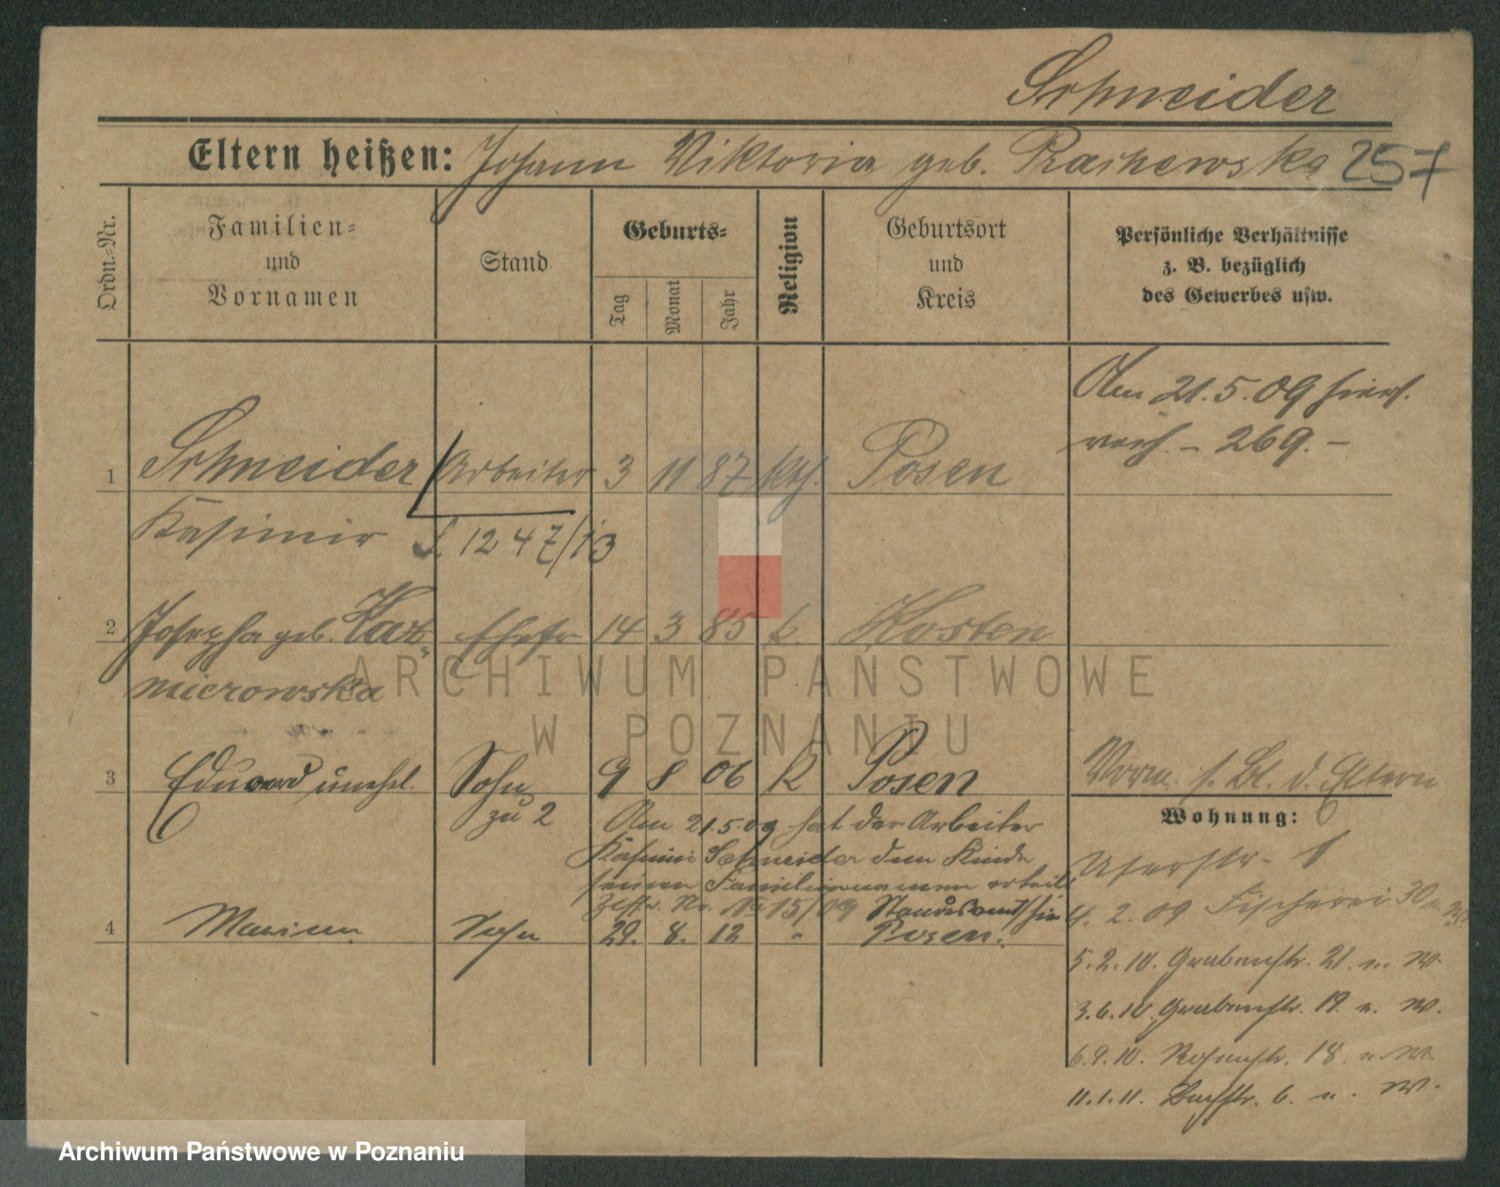 Schneider
Eltern heißen: Johann Viktoria geb. 257
Ordn.-Nr.
Familien-
und
Vornamen
Stand
Geburts-
Tag
Monat
Jahr
Religion
Geburtsort
und
Kreis
Persönliche Verhältnisse
z. B. bezüglich
des Gewerbes usw.
Am 21.5.09
verh. - 269. -
1 Schneider Arbeiter 3 11 87 kth. Posen
Kasimir 1247/13
2 Josepha geb. Kaz- Ehefr 14 3 85 k. Kosten
mierowska
3 Eduard unehel. Sohn 9 8 06 k Posen
zu 2
Vorm. s. Bl. d. Eltern
Wohnung:
Am 21.5.09 hat der Arbeiter
Kasimir Schneider dem Kinde
seinen Familiennamen erteilt
No 15/09 Standesamt hier
4 Marian Sohn 29. 8. 12 " Posen.
Uferstr. 1
4.2.09 Fischerei 30
5.2.10. Grabenstr. 21. n. W.
3.6.10. Grabenstr. 19. n. W.
6.9.10. Rosenstr. 18. n. W.
11.1.11. 6. n. W.
ARCHIWUM PAŃSTWOWE
W POZNANIU
Archiwum Państwowe w Poznaniu